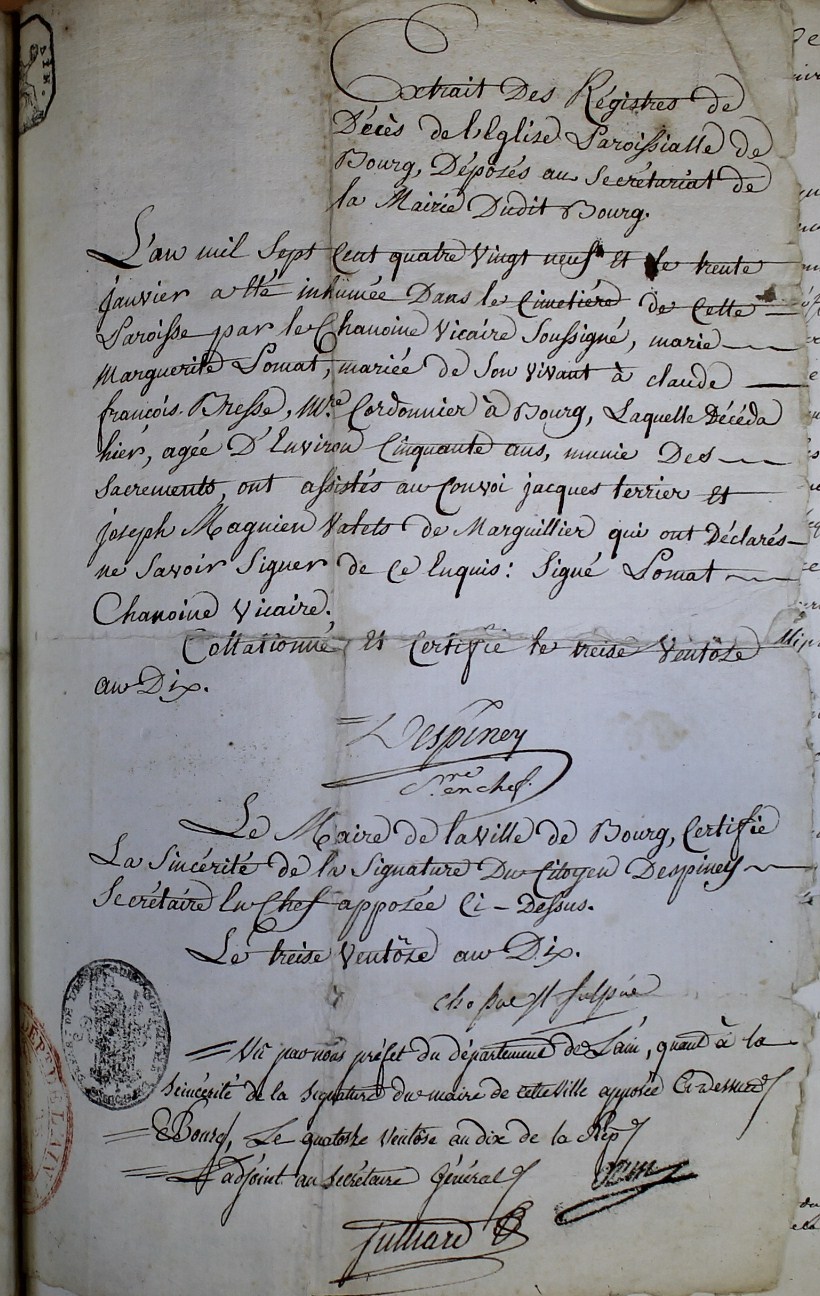 AIN.
Extrait Des Régistres de
Décès de l'Eglise Paroissialle de
Bourg, Déposés au Secrétariat de
la Mairie Dudit Bourg.
L'an mil Sept Cent quatre Vingt neuf Et le trente
janvier a été inhumée Dans le Cimetière de Cette
Paroisse par le Chanoine Vicaire Soussigné, marie
Marguerite Lomat, mariée de Son Vivant à claude
françois Bresse, M.re Cordonnier à Bourg, Laquelle Décéda
hier, agée D'Environ Cinquante ans, munie Des
Sacrements, ont assistés au Convoi jacques terrier Et
joseph Magnien Valets de Marguillier qui ont Déclarés
ne Savoir Signer de Ce Enquis: Signé Lomat
Chanoine Vicaire.
Collationné, Et Certifié le treise Ventôse
an Dix.
Despiney
S.re en chef.
Le Maire de la Ville de Bourg, Certifie
La Sincérité de la Signature Du Citoyen Despiney
Secrétaire En Chef apposée Ci-Dessus.
Le treise Ventôse an Dix.
Vu par nous préfet du département de L'ain, quant à la
Seincérité de la Signature du maire de cette ville apposée Ci dessus
Bourg, Le quatorze Ventôse an dix de la Rep
L'adjoint au Secrétaire Général
Julliard